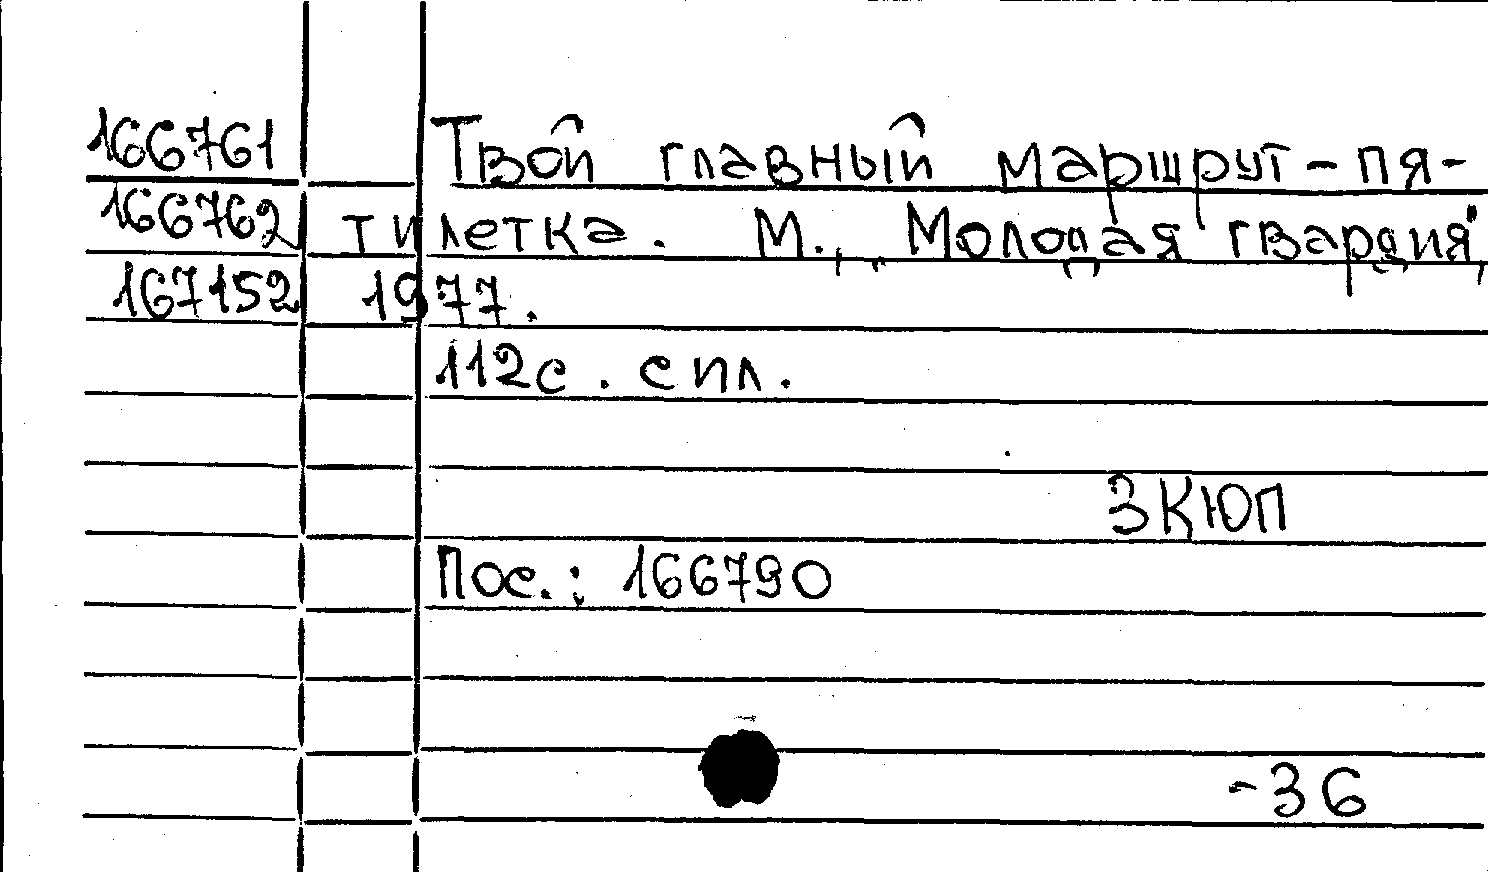 166761 Твой главный маршрут - пя-
166762 тилетка. М., „Молодая гвардия",
167152 1977.
112с. с ил.
3КЮП
Пос.: 166790
-36